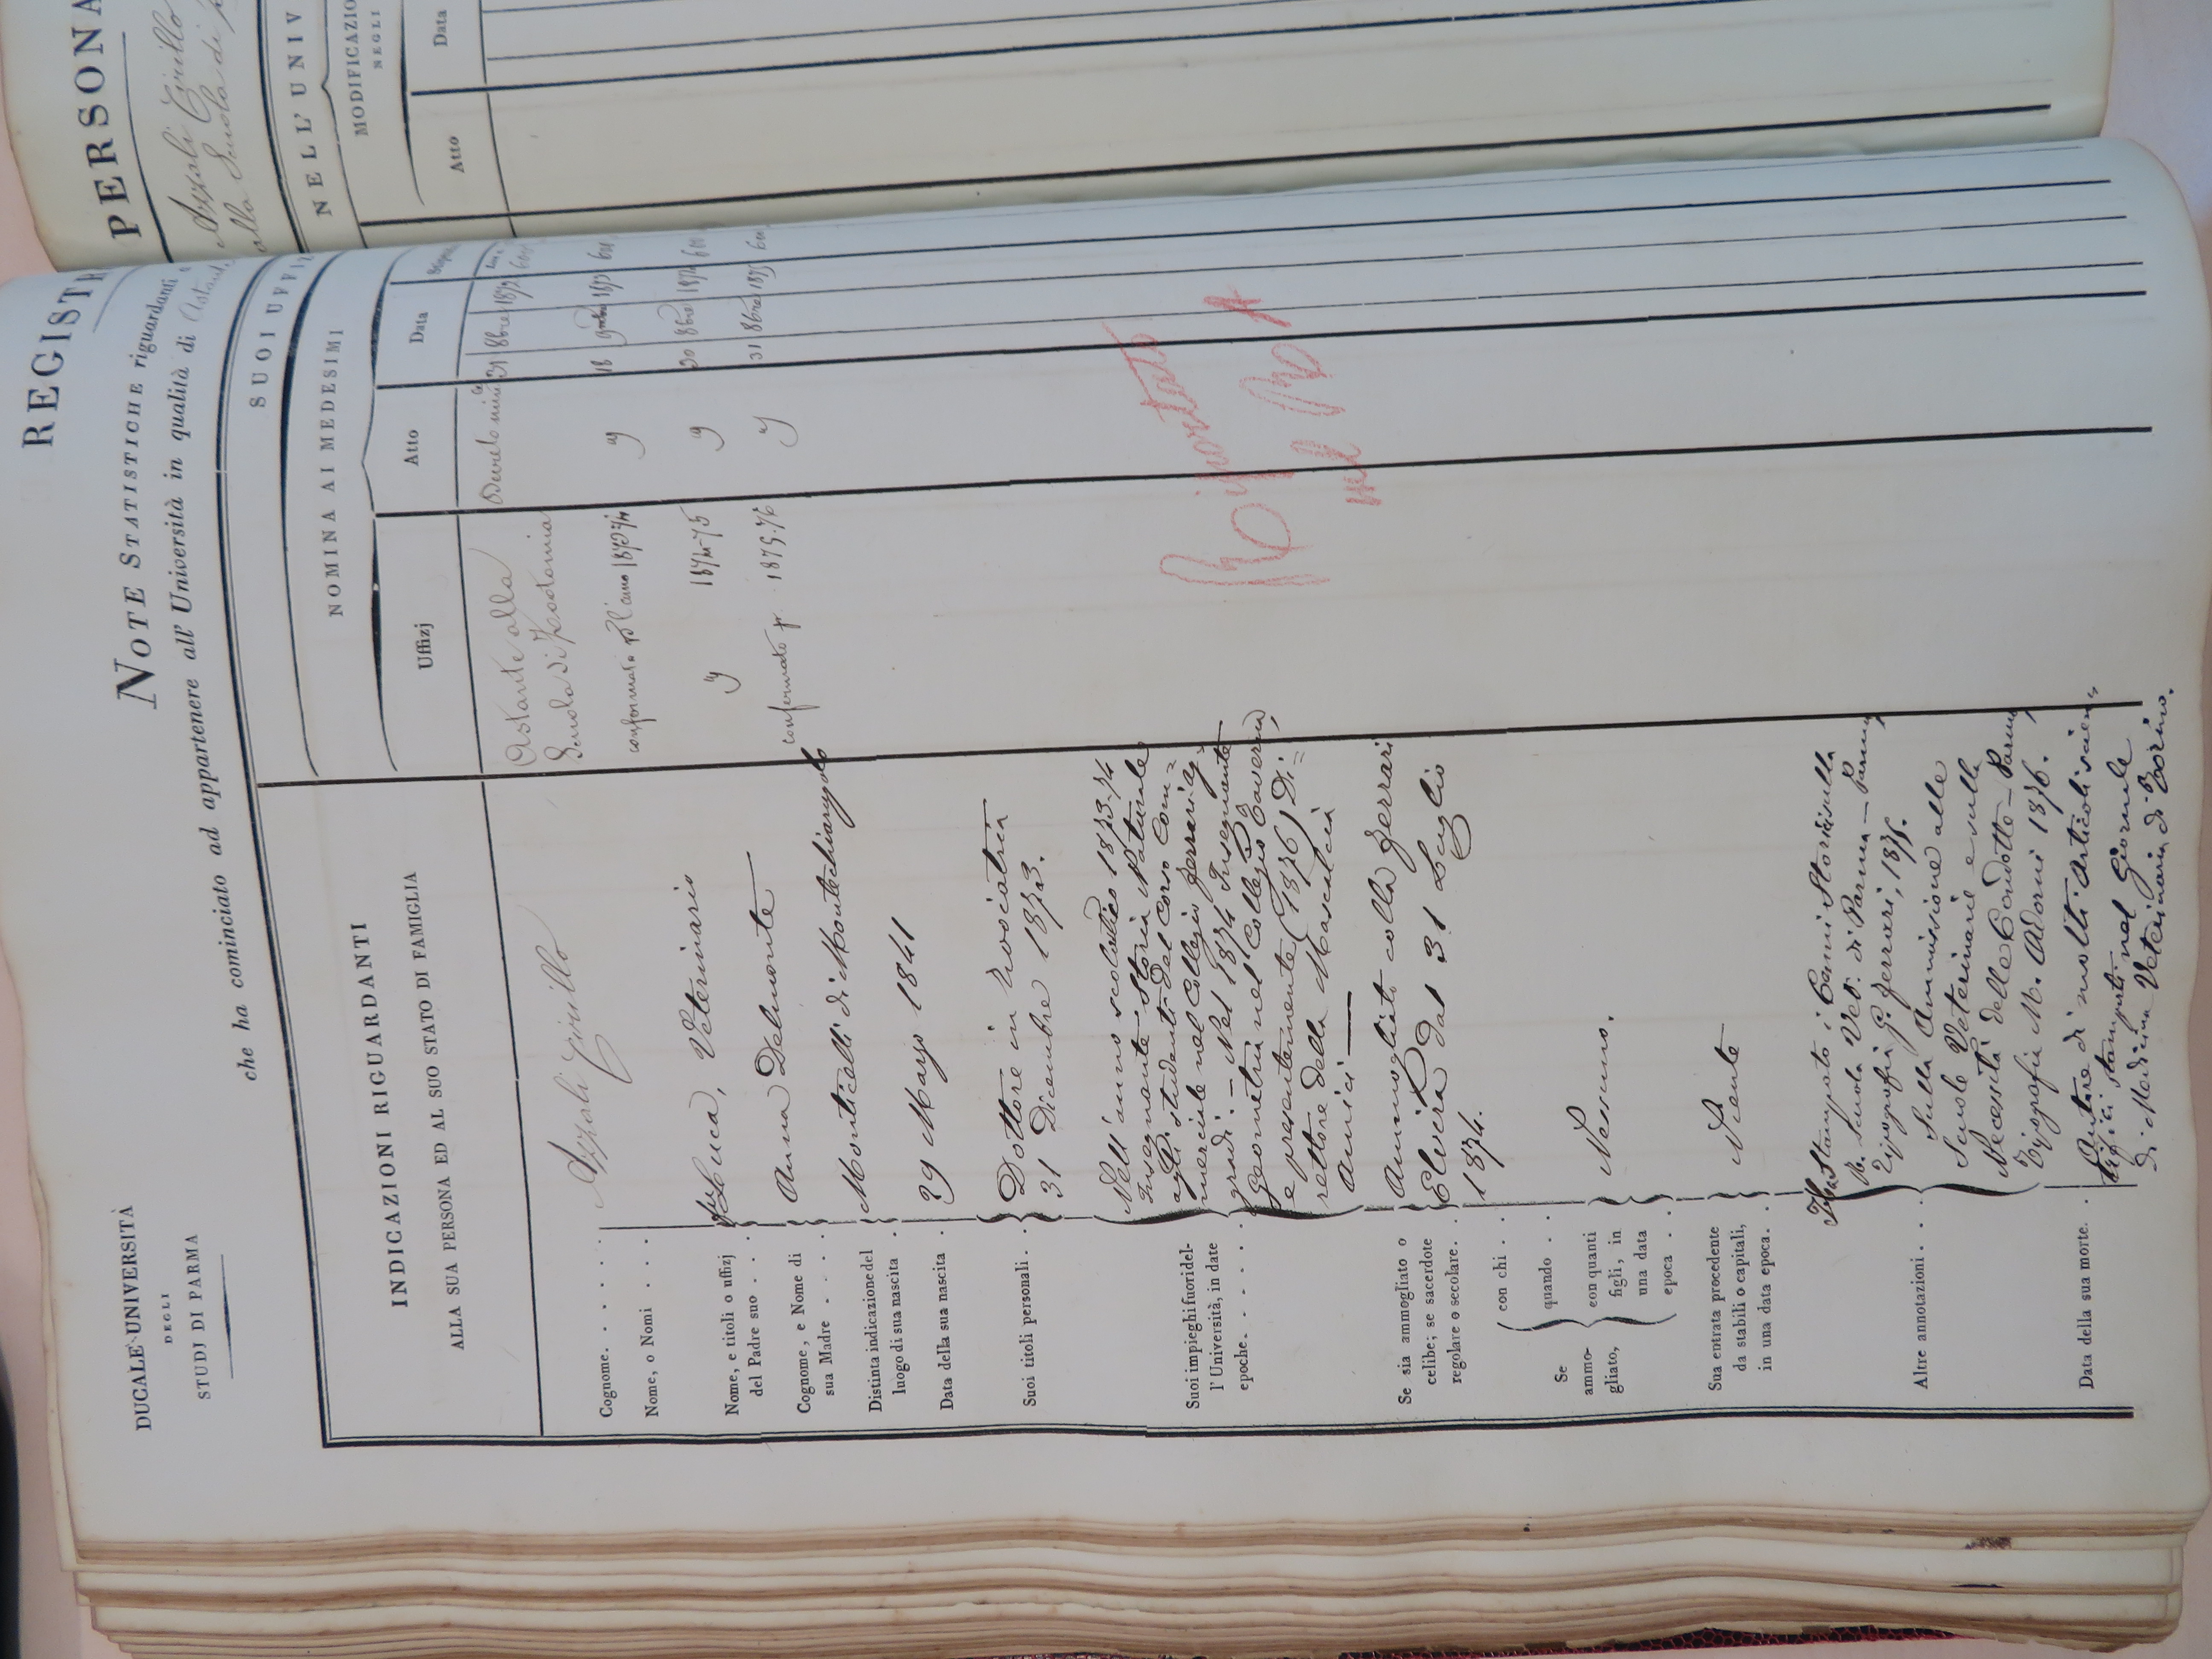 REGIST
DUCALE UNIVERSITÀ
DEGLI
STUDI DI PARMA
NOTE STATISTICHE riguardanti
che ha cominciato ad appartenere all' Università in qualità di Astant
INDICAZIONI RIGUARDANTI
ALLA SUA PERSONA ED AL SUO STATO DI FAMIGLIA
SUOI UFFIZ
NOMINA AI MEDESIMI
Uffizj
Atto
Data
Cognome. . . . . .
Azzali Cirillo
Nome, o Nomi . . .
Nome, e titoli o uffizj
del Padre suo . . .
Luca, Veterinario
Cognome, e Nome di
sua Madre . . . .
Anna Delmonte
Distinta indicazione del
luogo di sua nascita .
Monticelli di Montechiarugolo
Data della sua nascita .
29 Marzo 1841
Suoi titoli personali. .
Dottore in Zooiatria
31 Dicembre 1873.
Suoi impieghi fuori del-
l' Università, in date
epoche. . . . . .
Nell'anno scolastico 1873-74
Insegnante Storia Naturale
agli studenti del Corso Com=
merciale nel Collegio Ferrari
gradi. — Nel 1874 Insegnante
Geometria nel Collegio
e presentemente (1876) Di=
rettore della Mascalcia
Amici
Se sia ammogliato o
celibe; se sacerdote
regolare o secolare. .
Ammogliato colla Ferrari
Elvira dal 31 Luglio
1874.
Se
ammo-
gliato,
con chi . .
quando . .
con quanti
figli, in
una data
epoca . .
Nessuno.
Sua entrata procedente
da stabili o capitali,
in una data epoca. .
Niente
Altre annotazioni. . .
Stampato i Cenni Storici sulla
R. Scuola Vet: di Parma — Parma,
Tipografia G. Ferrari, 1875.
Sulla Ammissione alle
Scuole Veterinarie e sulle
Necessità delle Condotte — Parma,
Tipografia M. Adorni 1876.
Data della sua morte. .
Autore di molti Articoli scien
tifici stampati nel Giornale
di Medicina Veterinaria di Torino.
Astante alla
Scuola di Zootomia
Decreto
31 8bre 1872
confermato pel l'anno 1873-74
"
18 1873
" 1874-75
"
30 8bre 1874
confermato pr. 1875-76
"
31 8bre 1875
Riportato
nel
PERSONA
Azzali Cirillo
alla Scuola di
NELL' UNIV
MODIFICAZIO
NEGLI
Atto
Data